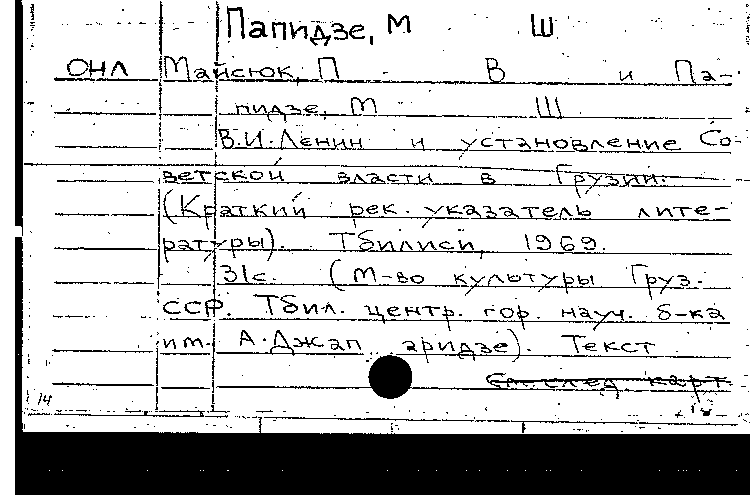 Папидзе, М Ш
ОНЛ Майсюк, П В и Па-
пидзе, М Ш
В.И.Ленин и установление Со-
ветской власти в Грузии.
(Краткий рек. указатель лите-
ратуры). Тбилиси, 1969.
31с. (М-во культуры Груз.
ССР. Тбил. центр. гор. науч. б-ка
им. А.Джапаридзе). Текст
См. след. карт
14